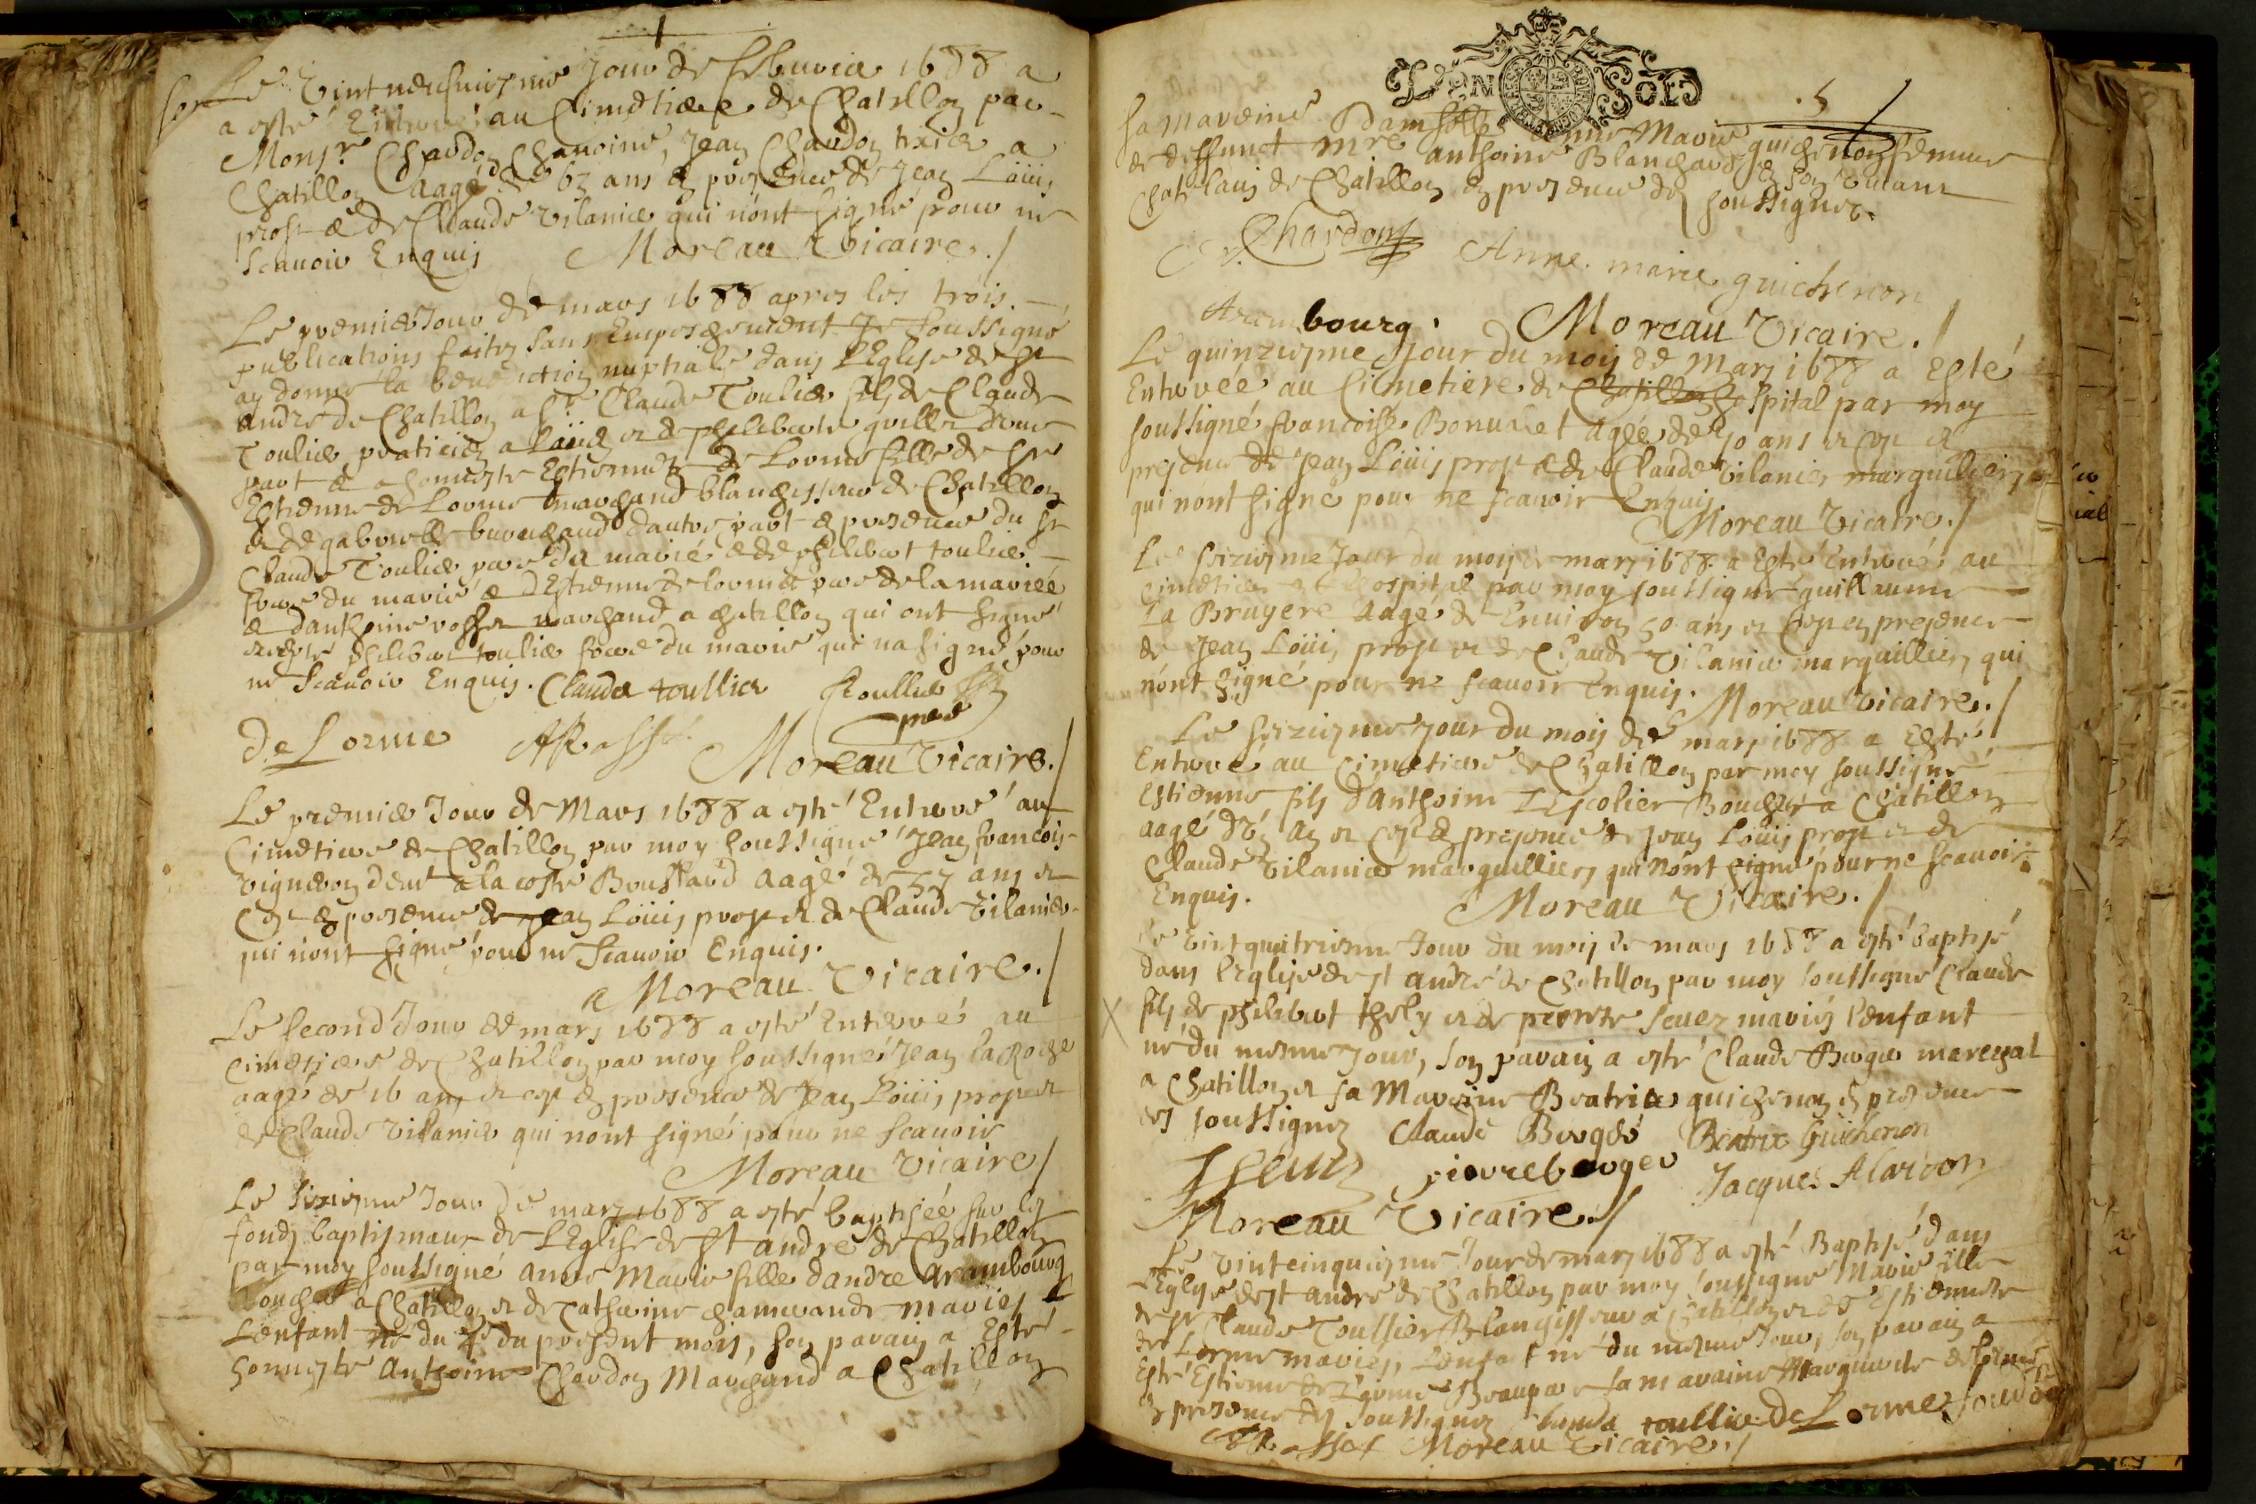 Le Vint neufuiesme Jour de febvrier 1688 a
a esté Enterré au Cimetiere de Chatillon par
Monsr Chardon Chanoine, Jean Chardon a
Chatillon aagé de 63 ans En presence de Jean Loüis
prost & de Claude vilanier qui n'ont signé pour ne
scavoir Enquis Moreau Vicaire./
Le premier Jour de mars 1688 apres les trois
publications faites sans Empeschement Je soussigné
ay donné la benediction nuptiale dans L'Eglise de st
André de Chatillon a Sr Claude Toulier fils de Claude
Toulier praticien a et de philiberte d'une
part & a honneste Estiennette de Lorme fille de sr
Estienne de Lorme marchand blanchisseur de Chatillon
& de gabrielle d'autre part En presence du sr
Claude Toulier pere du marié & de philibert toulier
frere du marié & d'Estienne de lorme pere de la mariée
& d'anthoine rosset marchand a chatillon qui ont signé
excepté philibert toulier frere du marié qui na signé pour
ne scavoir Enquis. Claude toullier toullier
pere
De Lorme Rosset Moreau Vicaire./
Le premier Jour de Mars 1688 a esté Enterré au
Cimetiere de Chatillon par moy soussigné Jean francois
vigneron a la coste aagé de 57 ans et
En presence de Jean Loüis prost et de Claude vilanier
qui n'ont signé pour ne scavoir Enquis.
Moreau Vicaire./
Le second Jour de mars 1688 a esté Enterré au
cimetiere de Chatillon par moy soussigné Jean la Roche
aagé de 16 ans et En presence de Jean Loüis prost et
de Claude vilanier qui nont signé pour ne scavoir
Moreau Vicaire/
Le sixiesme Jour de mars 1688 a esté baptisée sur les
fonds baptismaux de L'Eglise de St andré de Chatillon
par moy soussigné anne Marie fille d'andre Arambourg
boucher a Chatillon et de Catherine mariés
L'enfant né du 4e du present mois, son parain a Esté
honneste Anthoine Chardon Marchand a Chatillon
UN SOL
.5
sa maraine Damselle anne Marie guichenon femme
de deffunct mre anthoine Blanchard En son vivant
Chatelain de Chatillon En presence des soussignez.
Chardon Anne. marie guichenon
Arambourg. Moreau Vicaire./
Le quinziesme Jour du mois de Mars 1688 a Esté
Enterrée au Cimetiere de Chatillon hospital par moy
soussigné francoise Bonnaret agée de 70 ans et
presence de Jean Loüis prost & de Claude vilanier marguilliers
qui nont signé pour ne scavoir Enquis
Moreau Vicaire./
Le seiziesme Jour du mois de mars 1688 a Esté Enterré au
cimetiere de l'hospital par moy soussigné guillaume
La Bruyere aagé de Environ 50 ans et En presence
de Jean Loüis prost et de Claude Vilanier marguilliers qui
n'ont signé pour ne scavoir Enquis. Moreau Vicaire./
Le seiziesme Jour du mois de mars 1688 a Esté
Enterré au Cimetiere de Chatillon par moy soussigné
Estienne, fils d'anthoine Lescolier Boucher a Chatillon
aagé d'un an et En presence de Jean Loüis prost et de
Claude vilanier marguilliers qui n'ont signé pour ne scavoir
Enquis. Moreau Vicaire./
Le vint quatriesme Jour du mois de mars 1688 a esté baptisé
dans l'Eglise de st andré de Chatillon par moy soussigné Claude
fils de philibert thely et de pierrette mariés l'enfant
né du mesme Jour, son parain a esté Claude Burger mareschal
a Chatillon et sa Maraine Beatrix guichenon En presence
des soussignez Claude Beatrix Guichenon
pierre berger Jacques Alardon
Moreau Vicaire./
Le vintcinquiesme Jour de mars 1688 a esté Baptisé dans
L'Eglise de st andré de Chatillon par moy soussigné Marie fille
de sr Claude Toullier Blanchisseur a Chatillon et de Estiennette
de Lorme mariés, L'enfant né du mesme Jour, son parain a
Esté Estienne de Lorme Beaupere sa maraine Marguerite
En presence des soussignez Claude toullier De Lorme
Rosset Moreau Vicaire./